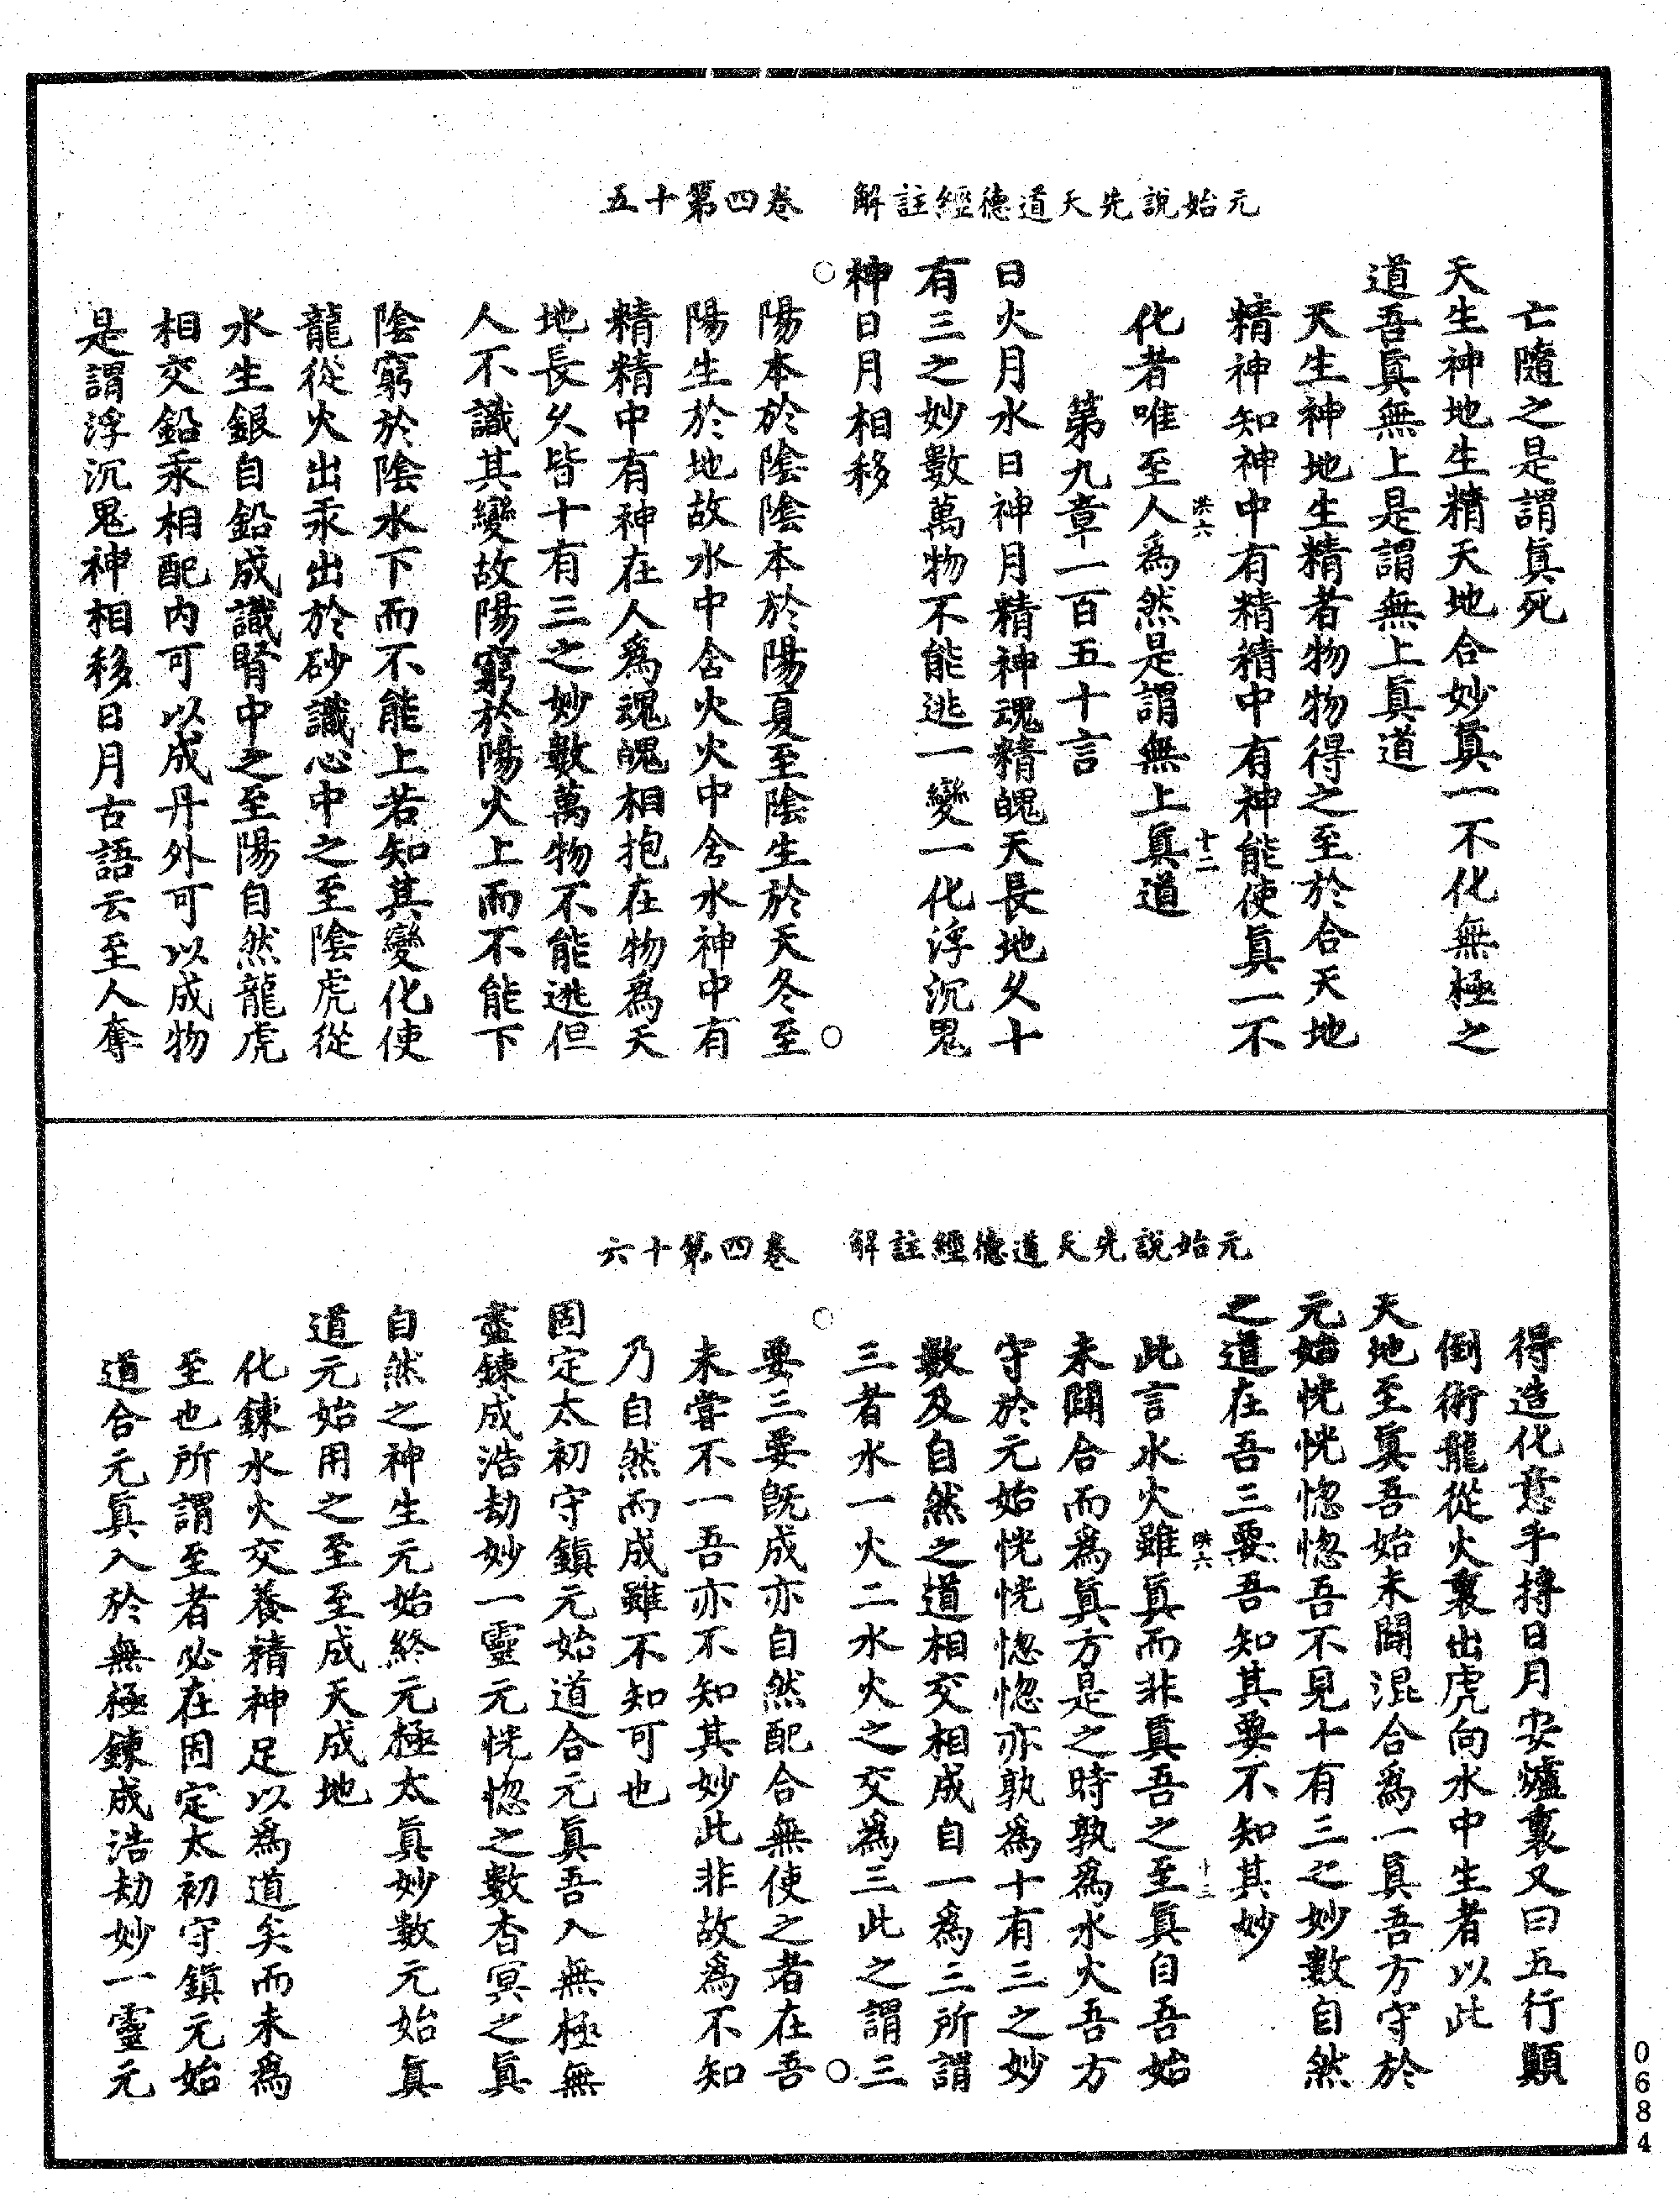 元始說先天道德經註解　卷四第十五
亡隨之是謂眞死
天生神地生精天地合妙眞一不化無極之
道吾眞無上是謂無上眞道
天生神地生精者物物得之至於合天地
精神知神中有精精中有神能使眞一不
洪六　十二
化者唯至人爲然是謂無上眞道
第九章一百五十言
日火月水日神月精神魂精魄天長地久十
有三之妙數萬物不能逃一變一化浮沉鬼
神日月相移
陽本於陰陰本於陽夏至陰生於天冬至
陽生於地故水中含火火中含水神中有
精精中有神在人爲魂魄相抱在物爲天
地長久皆十有三之妙數萬物不能逃但
人不識其變故陽窮於陽火上而不能下
陰窮於陰水下而不能上若知其變化使
龍從火出汞出於砂識心中之至陰虎從
水生銀自鉛成識腎中之至陽自然龍虎
相交鉛汞相配內可以成丹外可以成物
是謂浮沉鬼神相移日月古語云至人奪
元始說先天道德經註解　卷四第十六
得造化意手摶日月安爐裏又曰五行顚
倒術龍從火裏出虎向水中生者以此
天地至眞吾始未開混合爲一眞吾方守於
元始恍恍惚惚吾不見十有三之妙數自然
之道在吾三要吾知其要不知其妙
洪六　十三
此言水火雖眞而非眞吾之至眞自吾始
未開合而爲眞方是之時孰爲水火吾方
守於元始恍恍惚惚亦孰爲十有三之妙
數及自然之道相交相成自一爲三所謂
三者水一火二水火之交爲三此之謂三
要三要旣成亦自然配合無使之者在吾
未嘗不一吾亦不知其妙此非故爲不知
乃自然而成雖不知可也
固定太初守鎮元始道合元眞吾入無極無
盡鍊成浩劫妙一靈元恍惚之數杳冥之眞
自然之神生元始終元極太眞妙數元始眞
道元始用之至至成天成地
化鍊水火交養精神足以爲道矣而未爲
至也所謂至者必在固定太初守鎮元始
道合元眞入於無極鍊成浩劫妙一靈元
0684